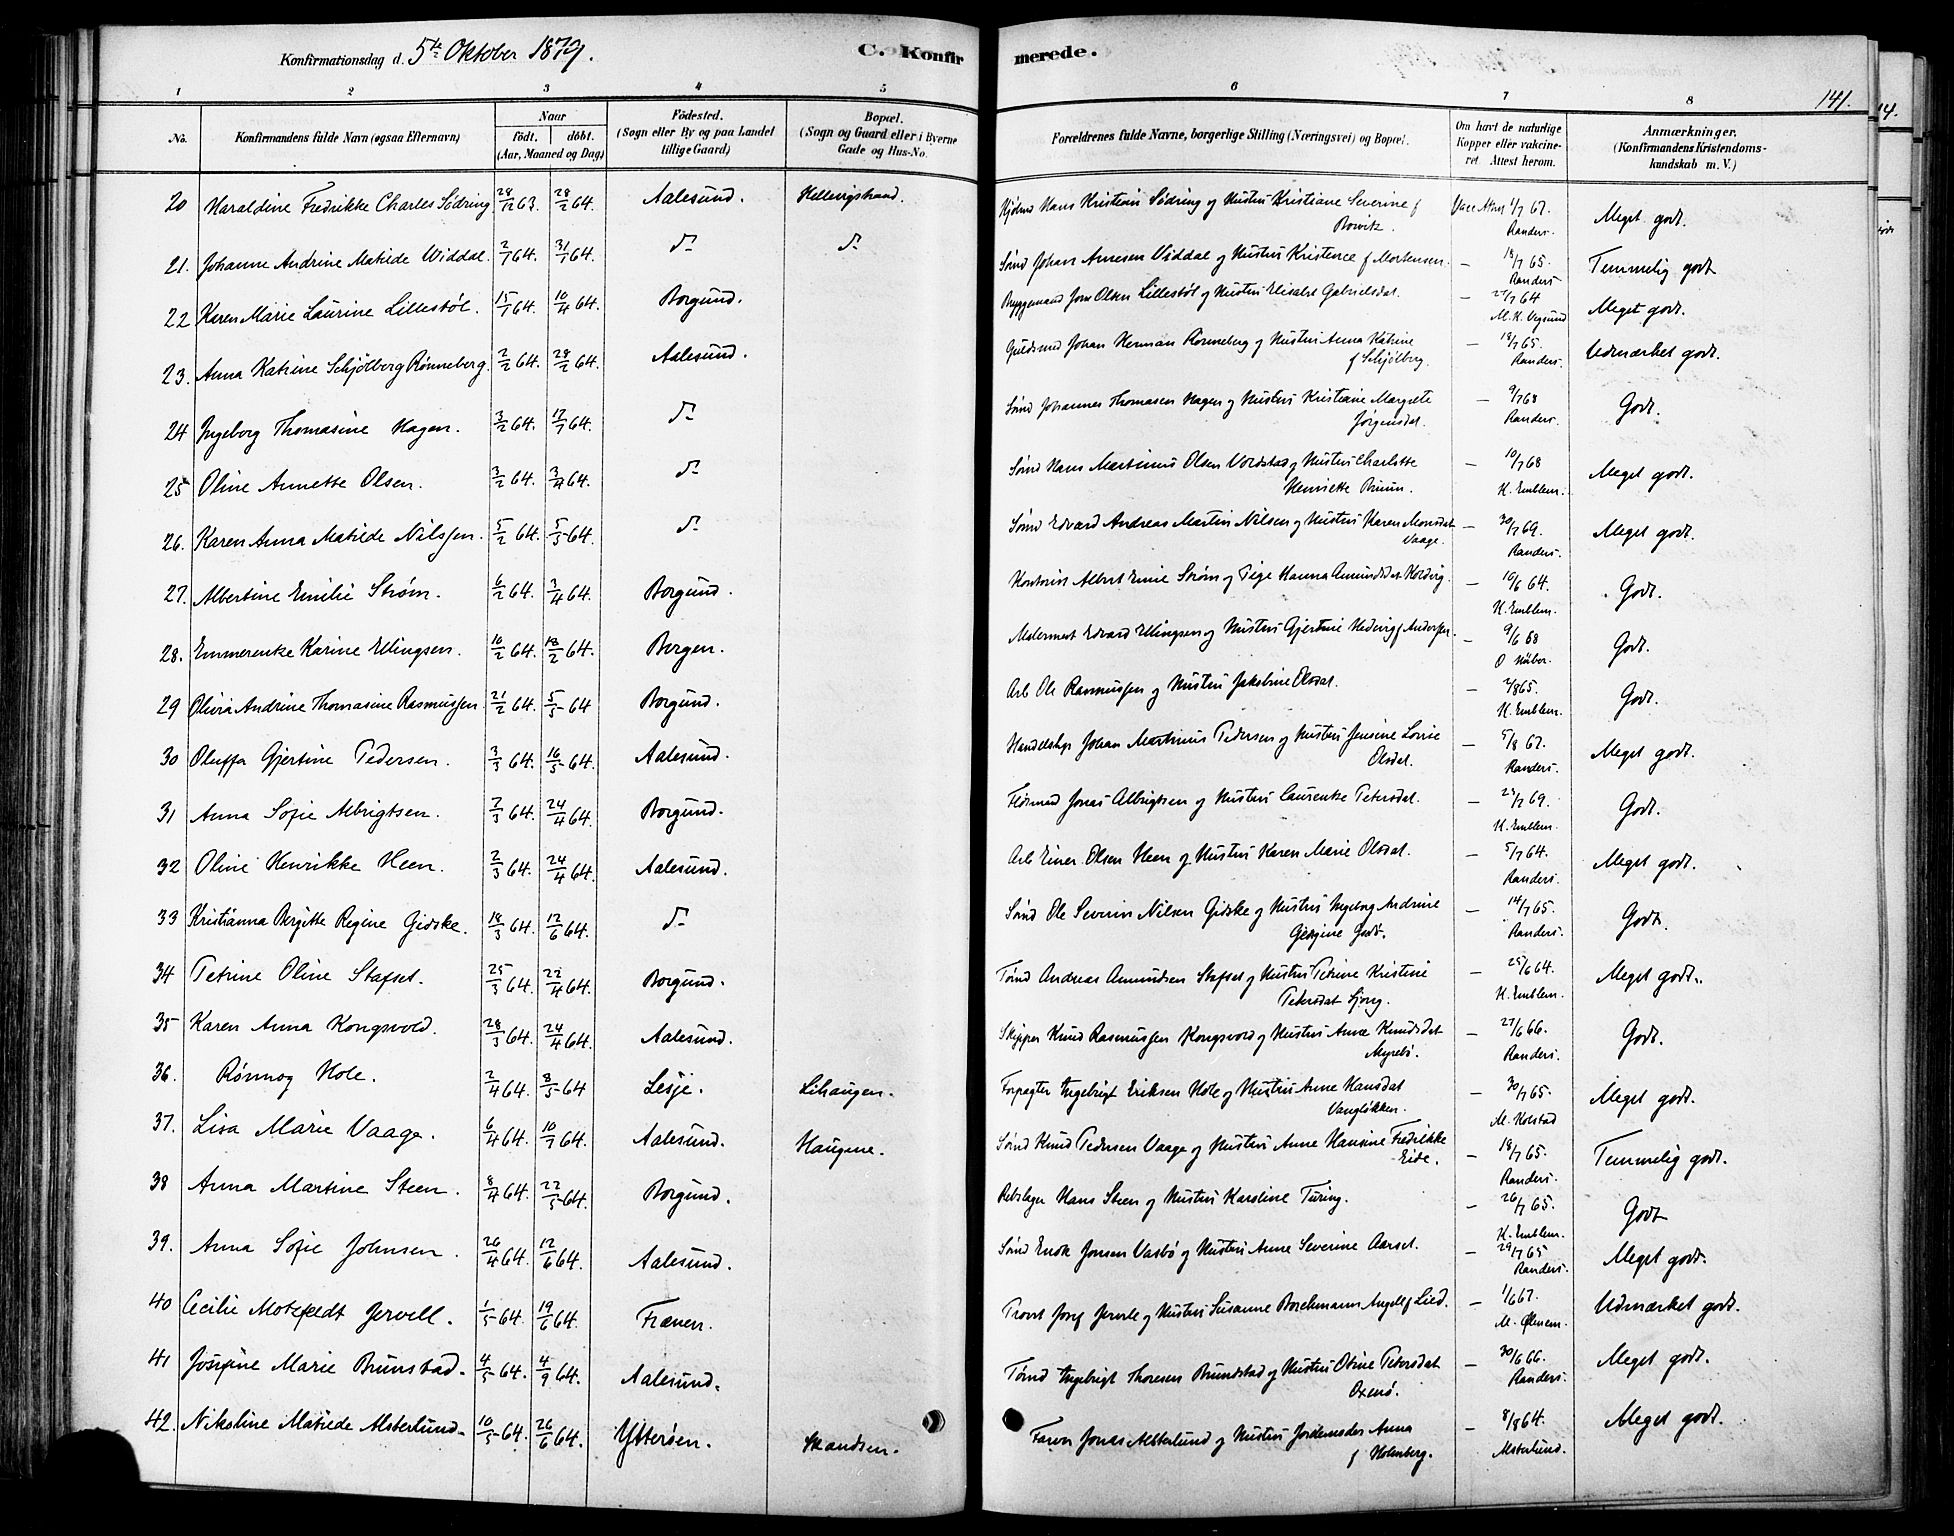 Konfirmationsdag d. 5te Oktober 1879.
C. Konfirmerede.
141.
1 2 3 4 5 6 7 8
No.
Konfirmandens fulde Navn (ogsaa Efternavn)
Naar
födt. döbt.
(Aar, Maaned og Dag)
Födested.
(Sogn eller By og paa Landet
tillige Gaard)
Bopæl.
(Sogn og Gaard eller i Byerne
Gade og Hus-No.
Forældrenes fulde Navne, borgerlige Stilling (Næringsvei) og Bopæl.
Om havt de naturlige
Kopper eller vakcine-
ret. Attest herom.
Anmærkninger.
(Konfirmandens Kristendoms-
kundskab m. V.)
20 Haraldine Fredrikke Charles Södring 28/12 63. 28/2 64. Aalesund. Hellengstrand. Hans Kristian Södring og Hustru Kristiane Severine f 1/7 67. Meget godt.
Randers.
21. Johanne Andrine Matilde Widdal. 2/1 64. 31/1 64. do do Sømd Johan Arnesen Viddal og Hustru Kristence f Mortensen. — 18/7 65. Temmelig godt
Randers
22 Karen Marie Laurine Lillestøl. 15/1 64. 10/4 64. Borgund. Byggemand Jon Olsen Lillestøl og Hustru Elisabet Gabrielsdat. — 27/7 64 Meget godt.
M. K. Vegsund
23. Anna Katrine Schjölberg Rønneberg. 2/2 64. 28/2 64. Aalesund. Guldsmed Johan Herman Rønneberg og Hustru Anna Katrine — 18/7 65. Udmærket godt.
f Schjölberg. Randers.
24 Ingeborg Thomasine Hagen. 3/2 64. 17/7 64. do Sømd Johannes Thomasen Hagen og Hustru Kristiane Margrete — 9/7 68 Godt.
Jørgensdat. Randers.
25 Oline Annette Olsen. 3/2 64. 3/4 64. do Sømd Hans Martinus Olsen Vordstad og Hustru Charlotte — 10/7 68 Meget godt.
Henriette Bruun. K. Emblem.
26. Karen Anna Matilde Nilssen. 5/2 64. 5/5 64. do Sømd Edvard Andreas Martin Nilsen og Hustru Karen Monsdat — 30/7 69. Meget godt.
Vaage. Randers.
27. Albertine Emilie Strøm. 6/2 64. 3/4 64. Borgund. Kontorist Albert Emil Strøm og Pige Hanna Amundsdat — 10/6 64. Godt.
K. Emblem.
28. Emmerenke Karine Ellingsen. 10/2 64. 18/2 64. Bergen. Malermest Edvard Ellingsen og Hustru Gjertine Hedvig f Andersen. — 9/6 68 Godt.
29 Olivia Andrine Thomasine Rasmussen 21/2 64. 5/5 64 Borgund. Arb Ole Rasmussen og Hustru Jakobine Olsdat. — 2/8 65. Godt.
K. Emblem.
30 Oluffa Gjertine Pedersen. 3/3 64. 16/5 64. Aalesund. Handelsbgr Johan Martinus Pedersen og Hustru Jensine Lovise — 5/8 67. Meget godt.
Olsdat. Randers.
31 Anna Sofie Albrigtsen. 7/3 64. 24/4 64. Borgund. Jonas Albrigtsen og Hustru Laurenke Petersdat. — 23/7 69. Godt.
K. Emblem.
32 Oline Henrikke Heen. 2/3 64. 24/4 64. Aalesund. Arb Einer Olsen Heen og Hustru Karen Marie Olsdat. — 5/7 64. Meget godt.
Randers.
33 Kristianna Bergitte Regine Gidske. 18/3 64. 12/6 64. do Sømd Ole Severin Nilsen Gidske og Hustru Ingeborg Andrine — 14/7 65. Godt.
Randers.
34 Petrine Oline Stafset. 25/3 64. 22/4 64. Borgund. Tømd Andreas Amundsen Stafset og Hustru Petrine Kristine — 25/6 64. Meget godt.
Petersdat K. Emblem.
35 Karen Anna Kongsvold. 28/3 64. 24/4 64. Aalesund. Skipper Knud Rasmussen Kongsvold og Hustru Anne Knudsdat — 27/6 66. Godt.
Myrebø. Randers.
36. Rönnog Hole. 2/4 64. 8/5 64 Lesje. Lihaugen. Forpagter Ingebrigt Eriksen Hole og Hustru Anne Hansdat — 30/7 65. Meget godt.
Vangløkken. M. Kolstad
37. Lisa Marie Vaage. 6/4 64. 10/7 64. Aalesund. Haugene. Sømd Knud Pedersen Vaage og Hustru Anne Hansine Fredrikke — 18/7 65. Temmelig godt.
Eide. Randers.
38 Anna Martine Steen. 8/4 64. 22/5 64. Borgund. Rebslager Hans Steen og Hustru Karoline Turing. — 26/7 65. Godt
K. Emblem.
39. Anna Sofie Johnsen. 26/4 64. 12/6 64. Aalesund. Sømd Enok Jonsen Vasbø og Hustru Anne Severine Aarset. — 29/7 65 Meget godt.
Randers.
40 Cecilie Motzfeldt Jervell. 1/5 64. 19/6 64. Frænen. Provst Josef Jervell og Hustru Susanne Borchmann Angell f Lied. — 1/6 67. Udmærket godt.
41 Josefine Marie Brunstad. 4/5 64. 4/9 64. Aalesund. Tømd Ingebrigt Thoresen Brundstad og Hustru Oline Petersdat — 30/6 66. Meget godt.
Oxenø. Randers.
42. Nikoline Matilde Alsterlund. 10/5 64. 26/6 64. Ytterøen. Skandsen. Farver Jonas Alsterlund og Hustru Anna — 8/8 64. Meget godt.
f Holmberg. Alsterlund.